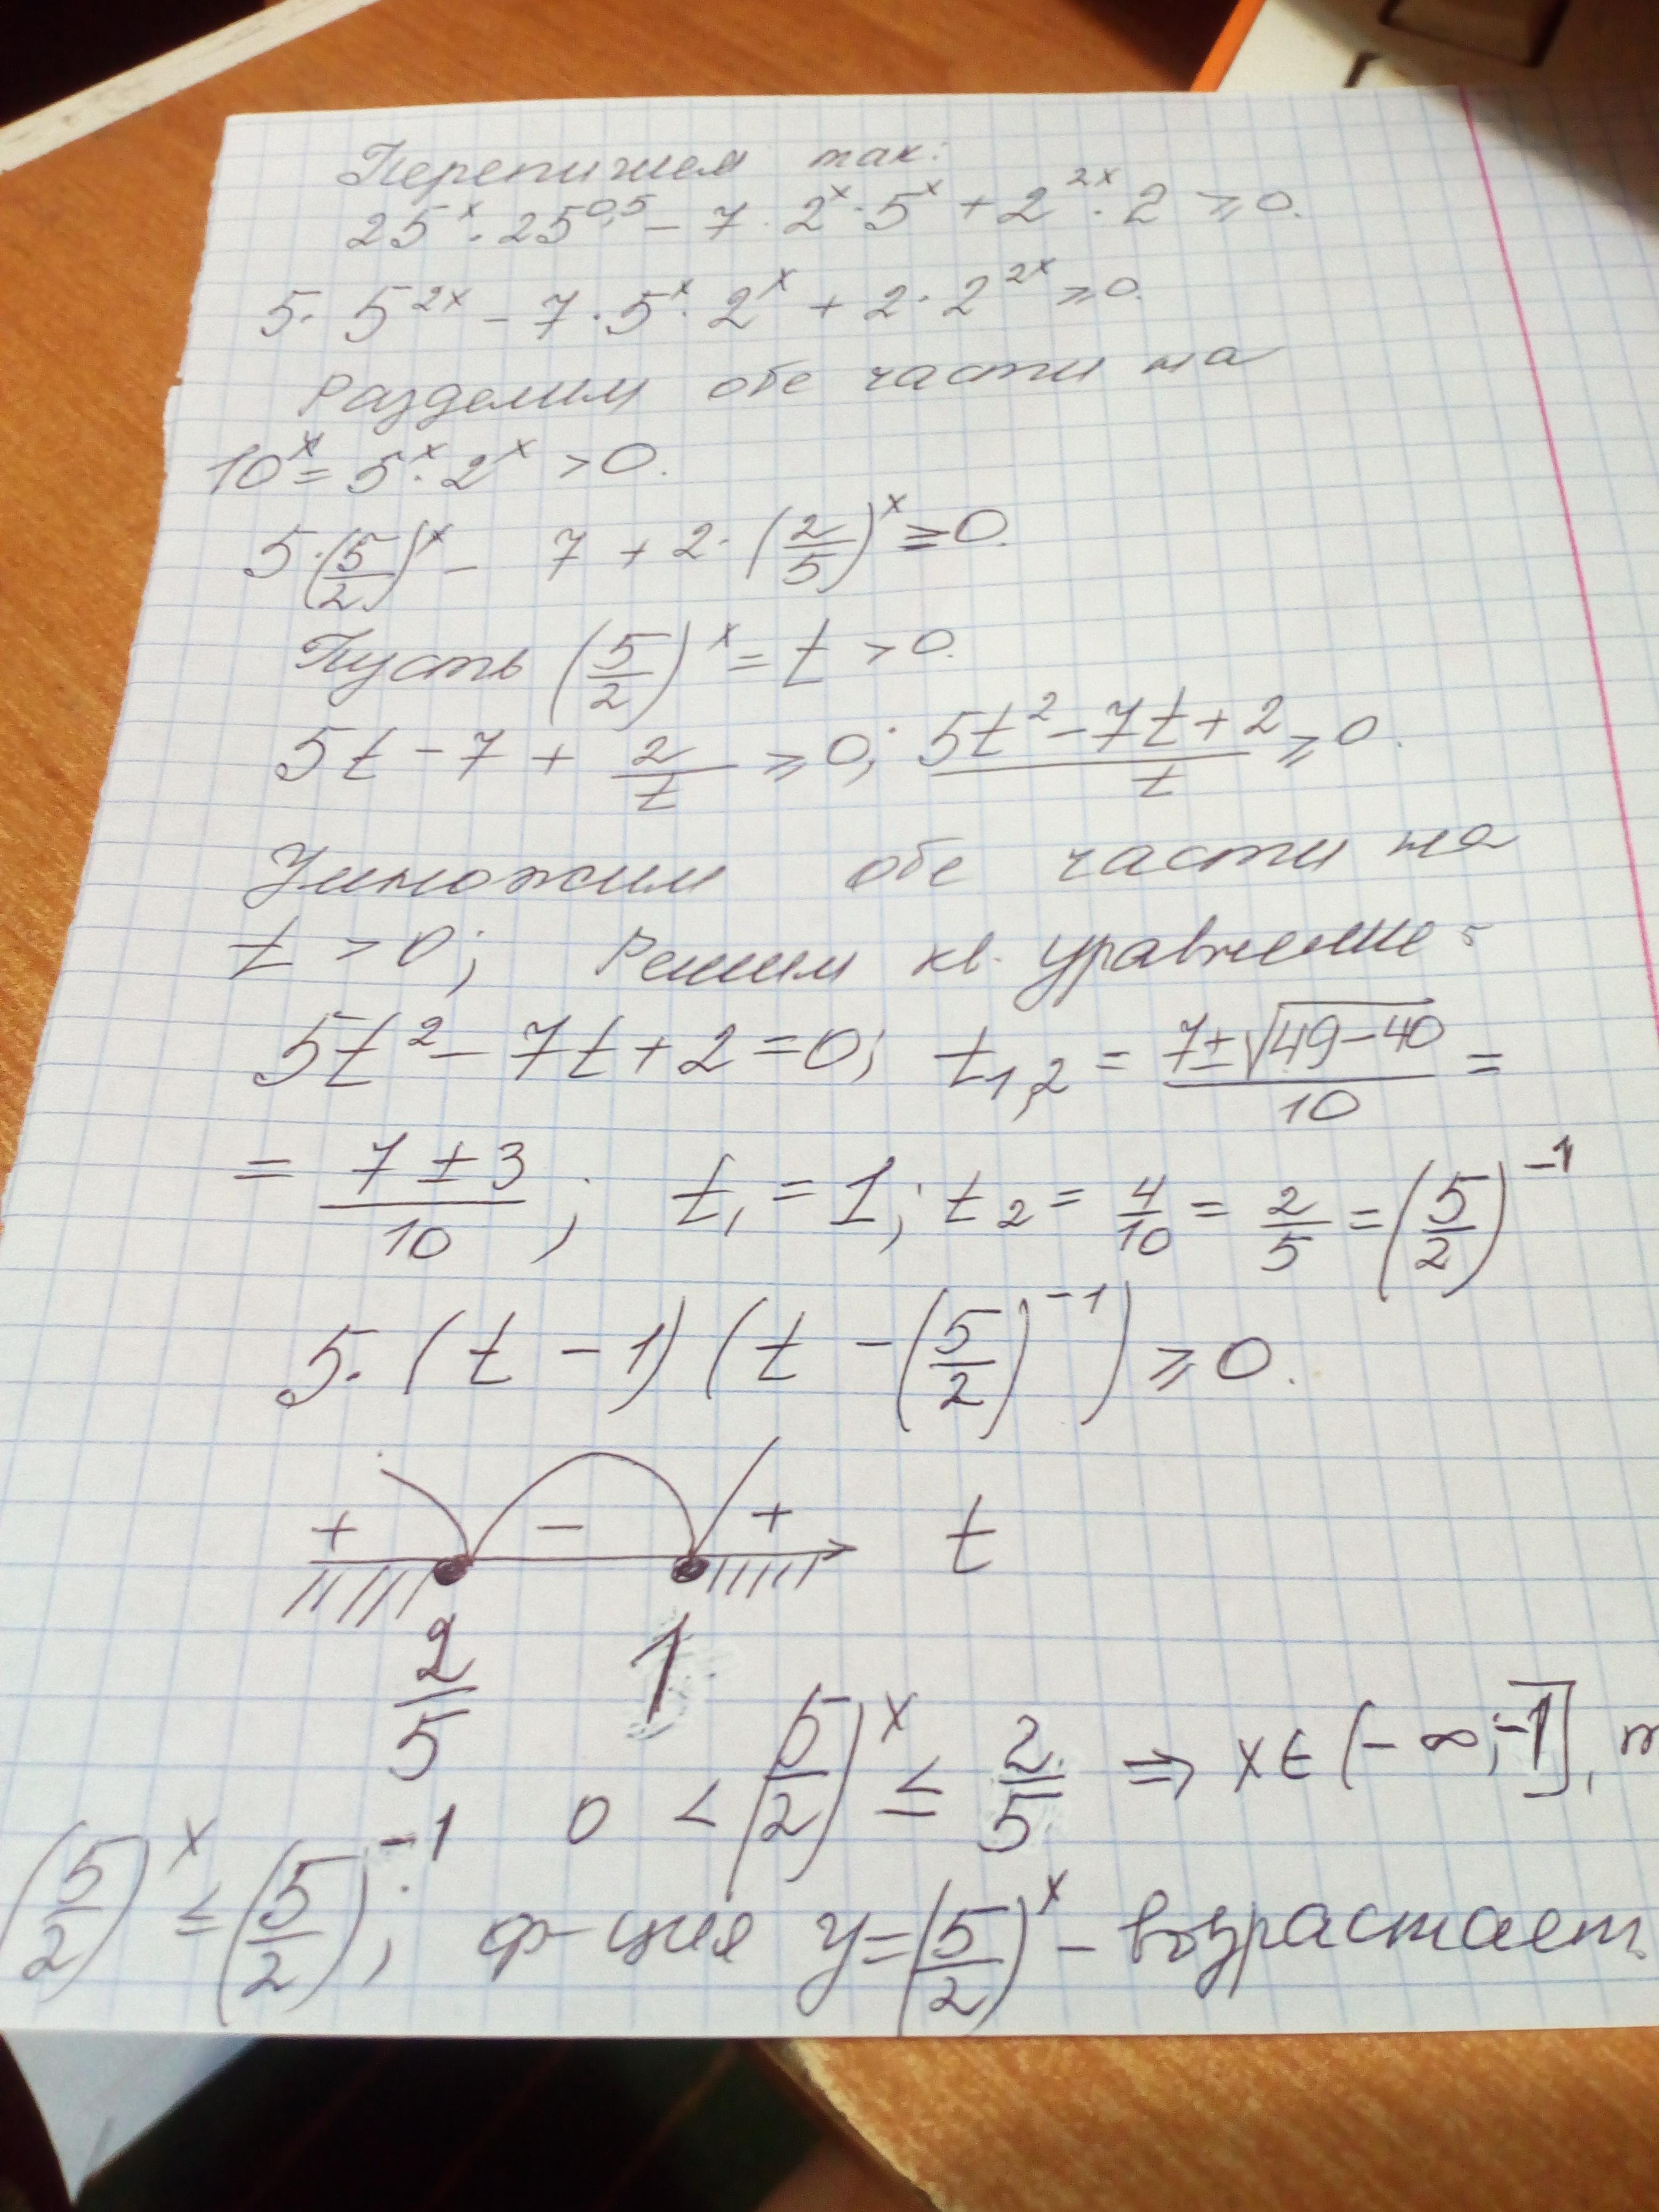 Перепишем так:
25^x · 25^0,5 − 7 · 2^x · 5^x + 2^2x · 2 ⩾ 0.
5 · 5^2x − 7 · 5^x · 2^x + 2 · 2^2x ⩾ 0.
Разделим обе части на
10^x = 5^x · 2^x > 0.
5 · (5/2)^x − 7 + 2 · (2/5)^x ≥ 0.
Пусть (5/2)^x = t > 0.
5t − 7 + 2/t ⩾ 0; (5t^2 − 7t + 2)/t ⩾ 0.
Умножим обе части на
t > 0; Решим кв. уравнение:
5t^2 − 7t + 2 = 0; t1,2 = (7 ± √(49 − 40))/10 =
= (7 ± 3)/10; t1 = 1; t2 = 4/10 = 2/5 = (5/2)^−1
5 · (t − 1)(t − (5/2)^−1) ⩾ 0.
+ − + t
2/5 1
0 < (5/2)^x ≤ 2/5 ⇒ x ∈ (−∞; −1], т
(5/2)^x ≤ (5/2)^−1; ф-ция y = (5/2)^x − возрастает.